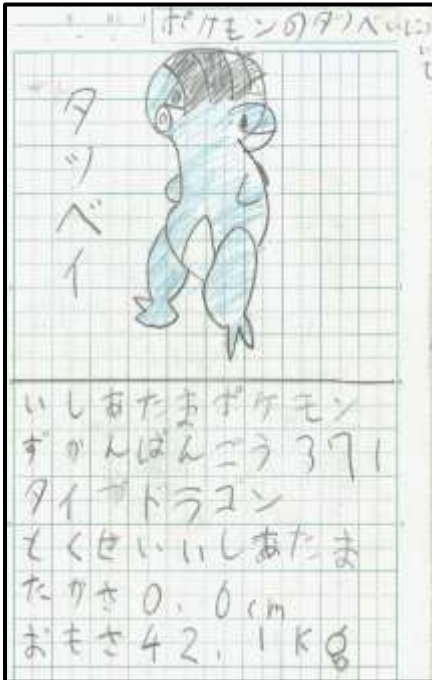 ポケモンのタツベイについて
タツベイ
いしあたまポケモン
ずかんばんごう371
タイプドラゴン
とくせいいしあたま
たかさ0.6cm
おもさ42.1kg